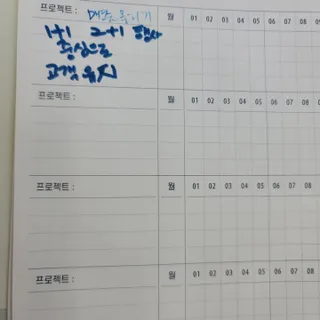 프로젝트 : 매장 옮이기 월 01 02 03 04 05 06 07 08
1+1 2+1 행사
중심으로
고객 유지
프로젝트 : 월 01 02 03 04 05 06 07 08
프로젝트 : 월 01 02 03 04 05 06 07 08
프로젝트 : 월 01 02 03 04 05 06 07 08